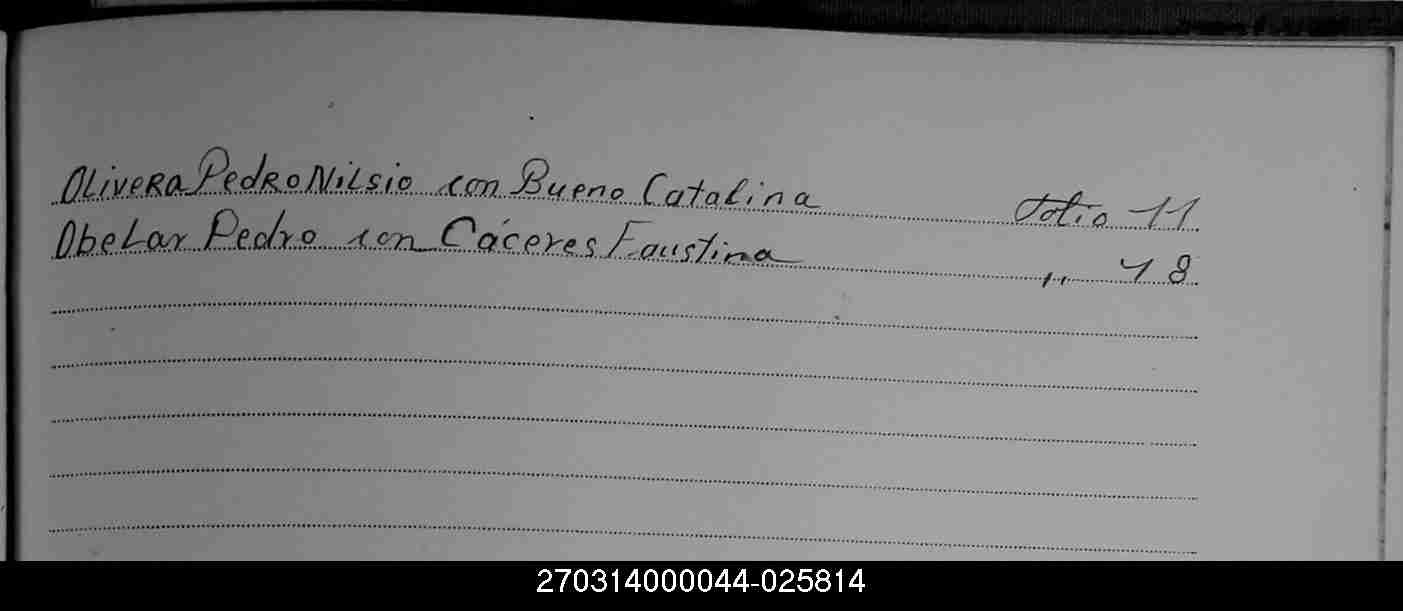 Olivera Pedro Nilsio con Bueno Catalina Folio 11
Obelar Pedro con Cáceres Faustina ,, 48
270314000044-025814